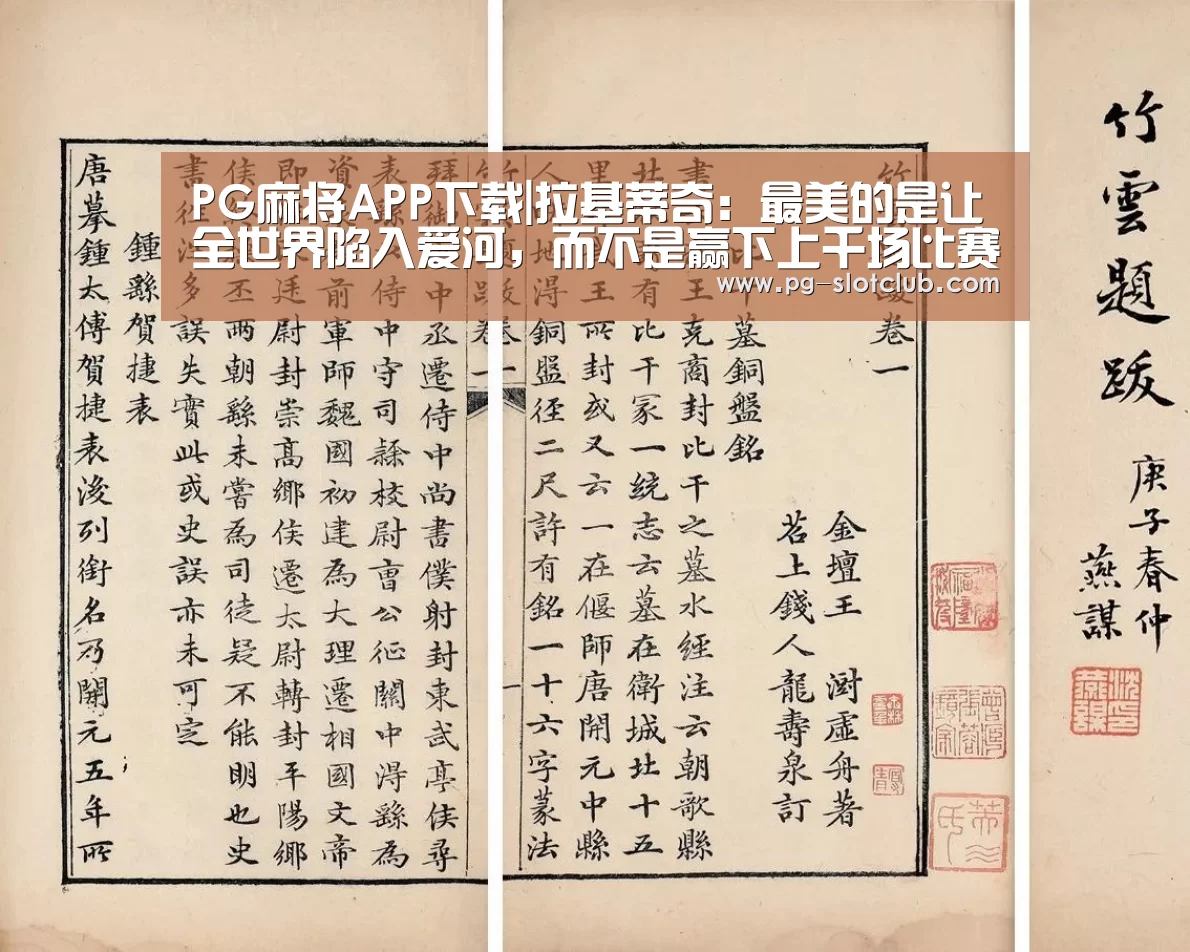 PG麻将APP下载|拉基蒂奇：最美的是让
全世界陷入爱河，而不是赢下上千场比赛
www.pg-slotclub.com
竹雲題跋
庚子春仲
燕謀
竹 跋卷一
金壇王 澍虛舟著
苕上錢人龍壽泉訂
比干墓銅盤銘
書 王克商封比干之墓水經注云朝歌縣
北 有比干冢一統志云墓在衛城北十五
里 王所封或又云一在偃師唐開元中縣
人 地得銅盤徑二尺許有銘一十六字篆法
竹 題跋 卷一
一
拜御 中丞遷侍中尚書僕射封東武亭侯尋
表繇 侍中守司隸校尉曹公征關中得繇為
資 前軍師魏國初建為大理遷相國文帝
即 廷尉封崇高鄉侯遷太尉轉封平陽鄉
侯 丕兩朝繇未嘗為司徒疑不能明也史
書往 多誤失實此或史誤亦未可定
鍾繇賀捷表
唐摹鍾太傅賀捷表後列銜名乃開元五年所